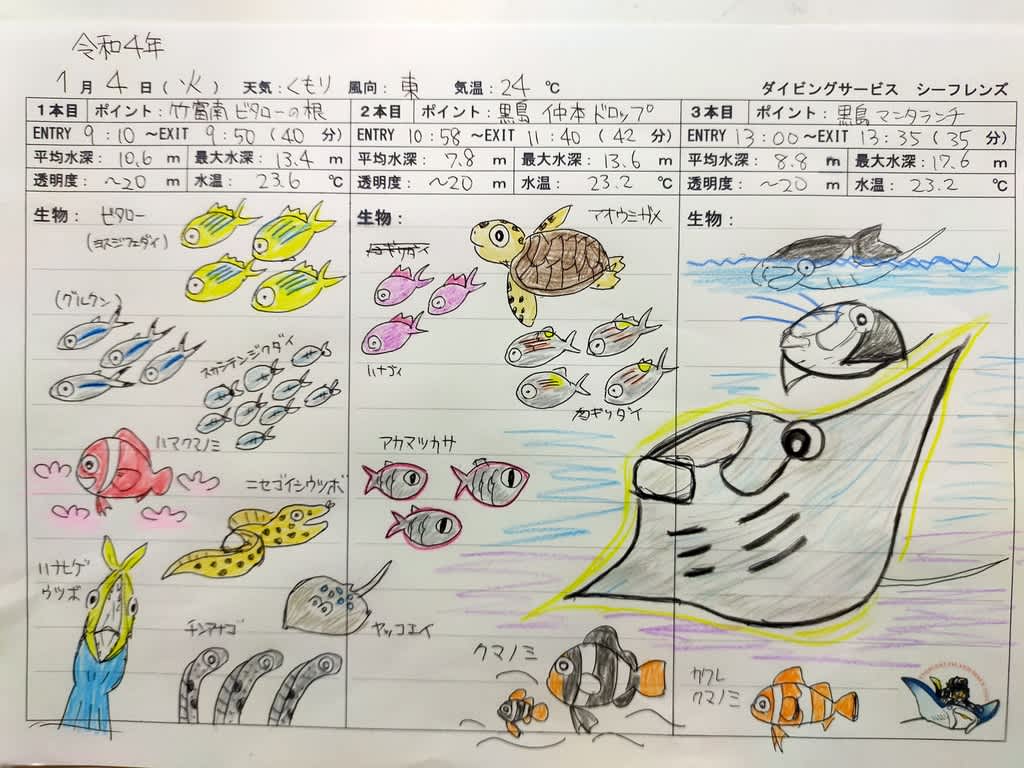 令和4年
1月4日(火) 天気:くもり 風向:東 気温:24℃ ダイビングサービス シーフレンズ
1本目 ポイント:竹富南 ビタローの根
ENTRY 9:10 ～EXIT 9:50 (40 分)
平均水深: 10.6 m 最大水深: 13.4 m
透明度: ～20 m 水温: 23.6 ℃
生物: ビタロー
(ヨスジフエダイ)
(グルクン)
スカシテンジクダイ
ハマクマノミ
ニセゴイシウツボ
ハナヒゲ
ウツボ
チンアナゴ
ヤッコエイ
2本目 ポイント:黒島 仲本ドロップ
ENTRY 10:58 ～EXIT 11:40 (42 分)
平均水深: 7.8 m 最大水深: 13.6 m
透明度: ～20 m 水温: 23.2 ℃
生物:
アオウミガメ
ハナゴイ
アカマツカサ
クマノミ
3本目 ポイント:黒島 マンタランチ
ENTRY 13:00 ～EXIT 13:35 (35 分)
平均水深: 8.8 m 最大水深: 17.6 m
透明度: ～20 m 水温: 23.2 ℃
生物:
カクレ
クマノミ